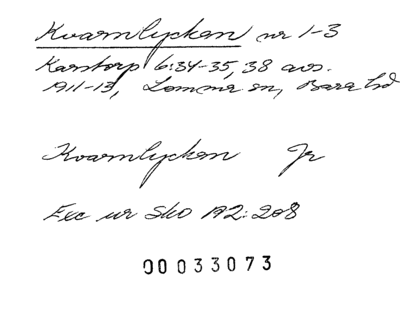 Kvarnlyckan nr 1-3
Karstorp 6:34-35, 38 avs.
1911-13, Lomma sn, Bara hd
Kvarnlyckan Jr
Exc ur Sko A2:208
00033073